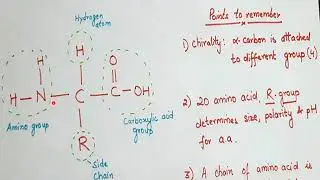 Hydrogen
atom
H
H
O
H
N
C
C
OH
Amino group
Carboxylic acid
group
R
Side
Chain
Points to remember
1) Chirality: α-carbon is attached
to different group (4)
2) 20 amino acid, R-group
determines size, polarity & pH
for a.a.
3) A chain of amino acid is